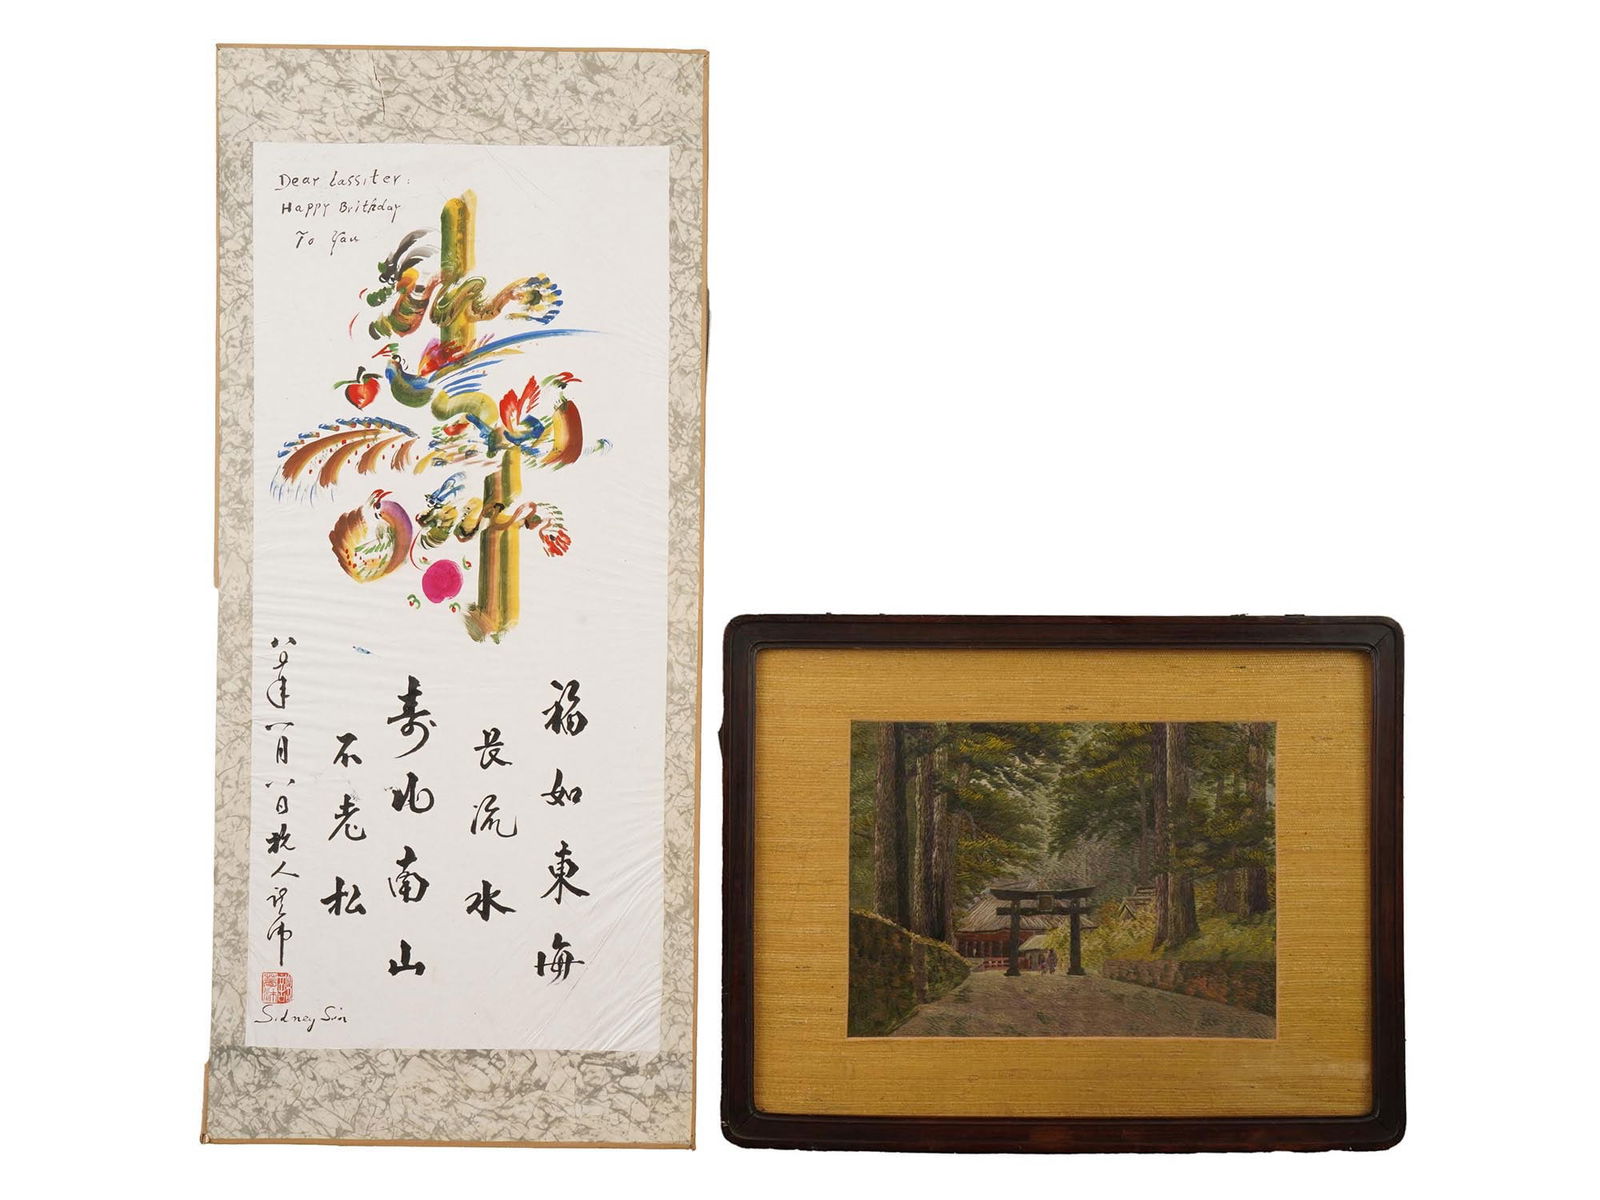 Dear Lassiter:
Happy Brithday
To You
福如東海
長流水
寿比南山
不老松
八〇年一月八日
Sidney Sin